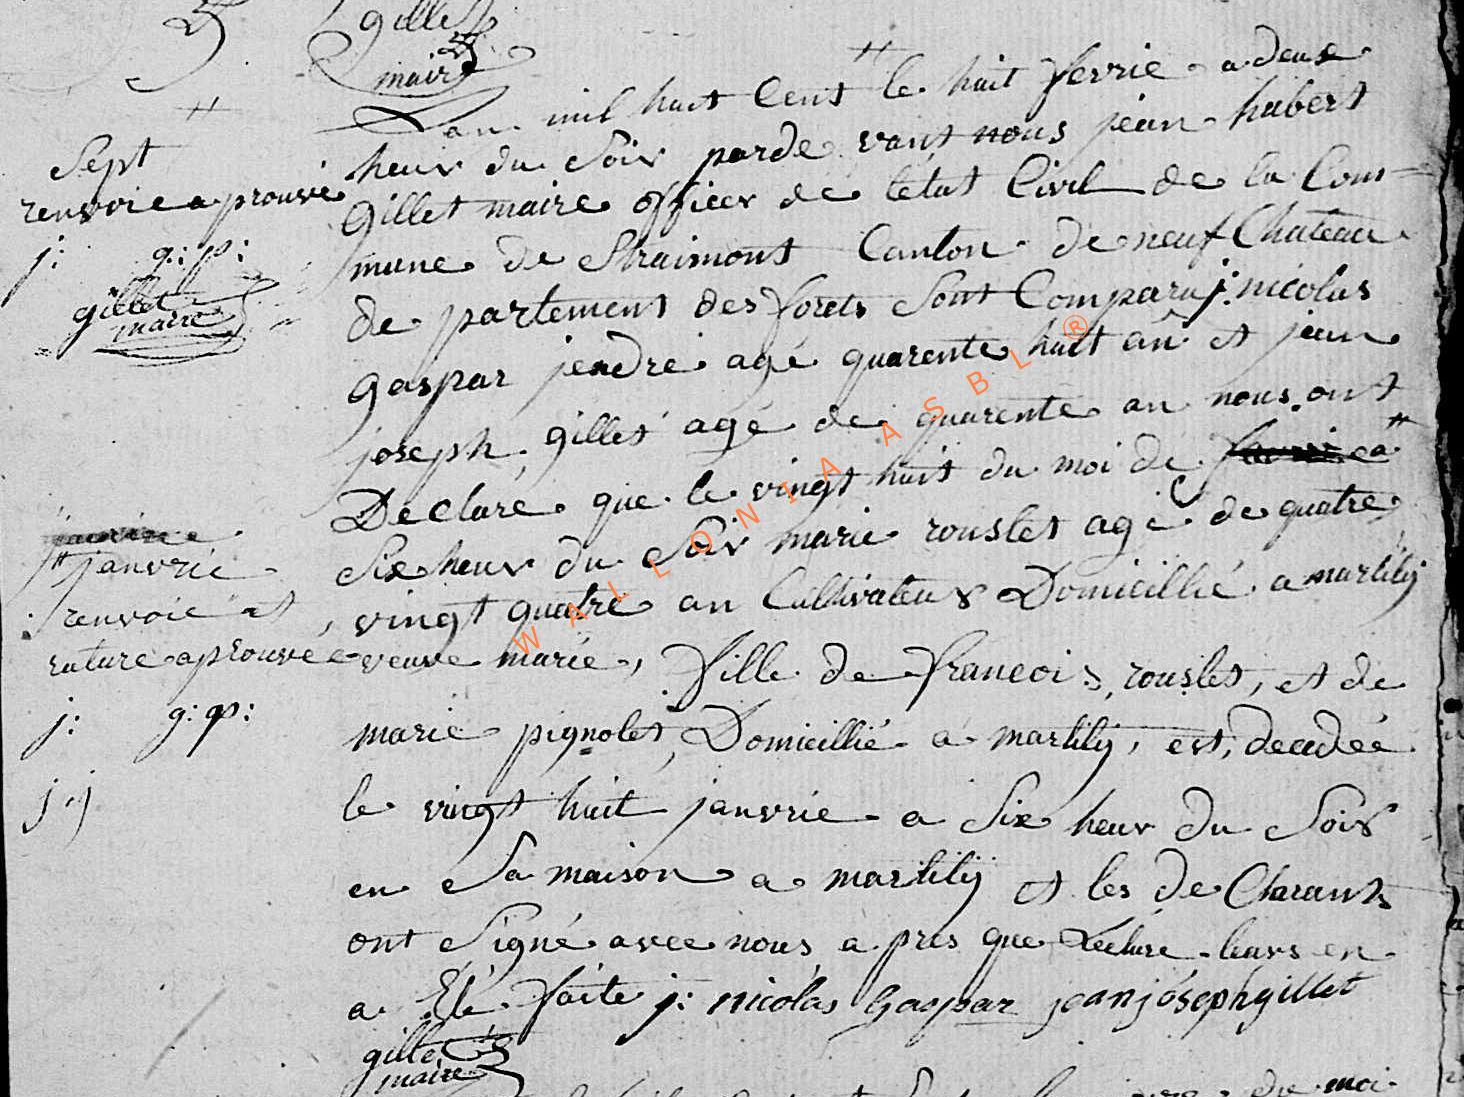 gillet
maire
L'an mil huit Cent " le huit fevrie a deux
heur du Soir parde vant nous jean hubert
gillet maire officer de letat Civil de la Com-
mune de Straimont Canton de neuf Chateau
de partement des forets Sont Comparu j: nicolas
gaspar jendre agé quarente huit an et jean
joseph gillet agé de quarente an nous ont
Declare que le vingt huit du moi de "
Six heur du Soir marie rouslet agé de quatre
vingt quatre an Cultivateur Domicillié a martilij
veuve mariée, fille de francois rouslet, et de
marie pignolet, Domicillié a martilij, est, decedée
le vingt huit janvrie a Six heur du Soir
en Sa maison a martilij et les de Clarants
ont Signé avec nous a pres que Lecture leurs en
a Eté faite j: nicolas gaspar jean joseph gillet
gillet
maire
"
Sept
renvoie a prouvé
j: g: p:
gillet
maire
" janvrie
renvoie et
rature aprouvée
j: g: p:
j j
du moi
WALLONIA ASBL ®